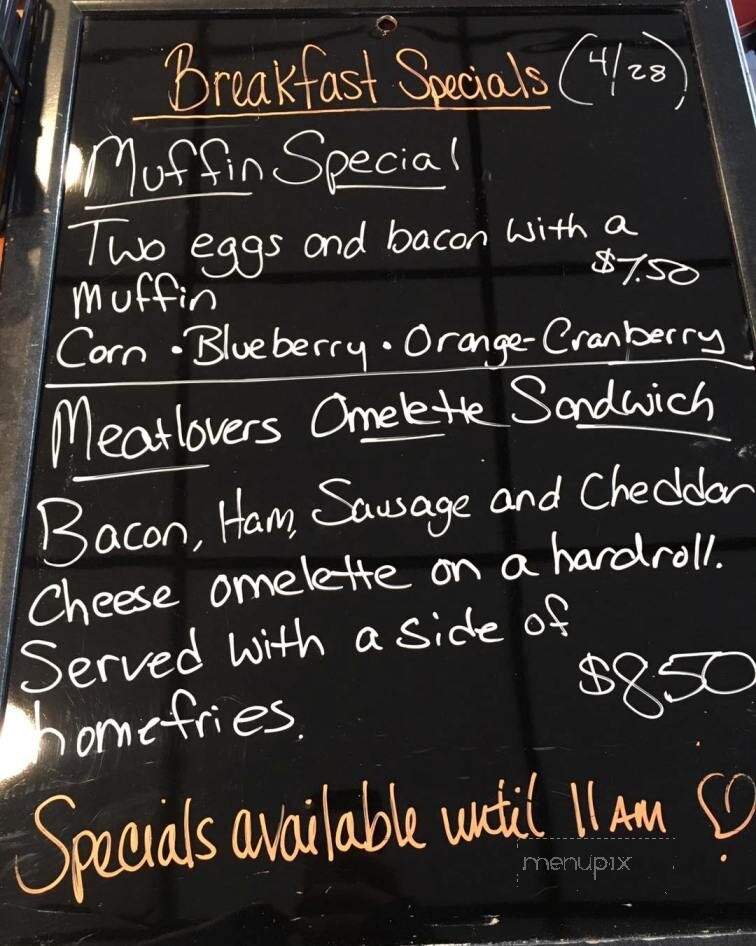 Breakfast Specials (4/28)
Muffin Special
Two eggs and bacon with a
muffin $7.50
Corn • Blueberry • Orange-Cranberry
Meatlovers Omelette Sandwich
Bacon, Ham, Sausage and Cheddar
Cheese omelette on a hardroll.
Served with a side of
homefries. $8.50
Specials available until 11 AM
menupix